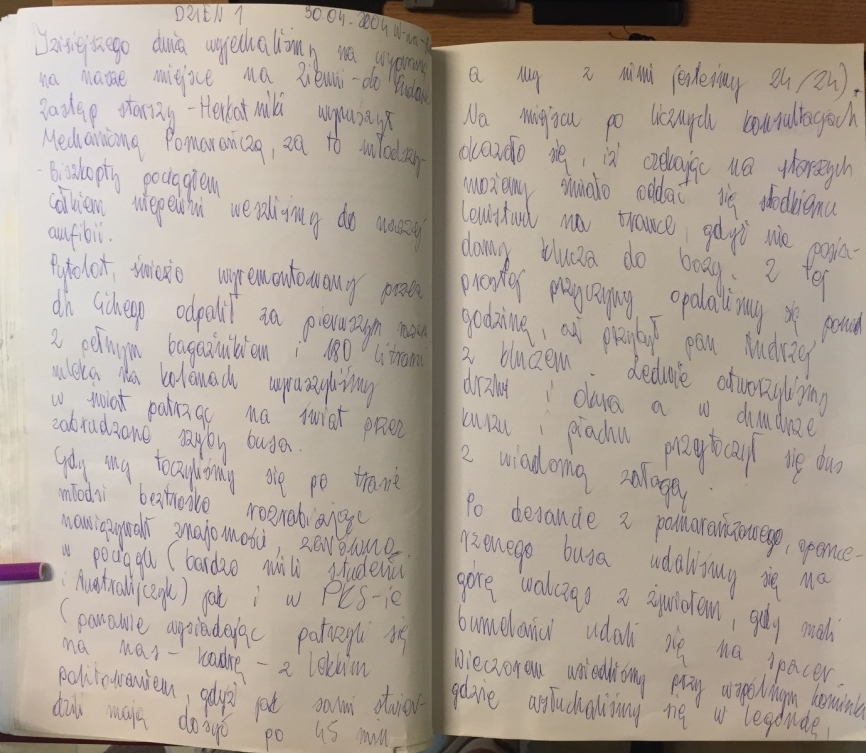 DZIEŃ 1 30.04.2004
Dzisiejszego dnia wyjechaliśmy na wyprawę
na nasze miejsce na Ziemi - do
Zastęp starszy - Herbatniki wyruszył
Mechaniczną Pomarańczą, za to młodszy
- Biszkopty pociągiem
Całkiem niepewni weszliśmy do naszej
amfibii.
Pyrolot, świeżo wyremontowany przez
dh Cichego odpalił za pierwszym razem
z pełnym bagażnikiem i 180 litrami
mleka na kolanach wyruszyliśmy
w świat patrząc na świat przez
zabrudzone szyby busa.
Gdy my toczyliśmy się po trasie
młodsi beztrosko rozrabiając
nawiązywali znajomości, zarówno
w pociągu (bardzo mili studenci
i Australijczyk) jak i w PKS-ie
(panowie wysiadając patrzyli się
na nas - kadrę - z lekkim
politowaniem, gdyż jak sami stwier-
dzili mają dosyć po 45 min
a my z nimi jesteśmy 24/24).
Na miejscu po licznych konsultacjach
okazało się, iż czekając na starszych
możemy śmiało oddać się słodkiemu
lenistwu na trawce, gdyż nie posia-
damy klucza do bazy. Z tej
prostej przyczyny opalaliśmy się ponad
godzinę, aż przybył pan Andrzej
z kluczem. Ledwie otworzyliśmy
drzwi i okna a w chmurze
kurzu i piachu przytoczył się bus
z wiadomą załogą.
Po desancie z pomarańczowego, opance-
rzonego busa udaliśmy się na
górę walcząc z żywiołem, gdy mali
bumelanci udali się na spacer.
Wieczorem usiedliśmy przy wspólnym kominku
gdzie wsłuchaliśmy się w legendę,